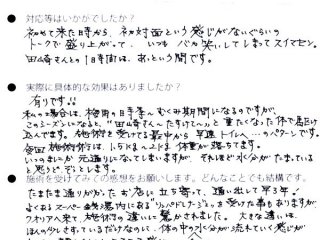 ● 対応等はいかがでしたか?
初めて来た時から、初対面という感じがないぐらいの
トークで盛り上がって、いつもバカ笑いしてしまってスイマセン。
田崎さんとの1時間は、あっという間です。
● 実際に具体的な効果はありましたか?
有りです!!
私の場合は、梅雨の時季〜むくみ期間になるのですが、
このシーズンになると、"田崎さんたすけて〜"と重たくなった体で駆け
込んでます。施術を受けてる最中から早速トイレへ…のパターンです。
毎回施術後は、1.5kg〜2kg体重が落ちてます。
いつのまにか元通りになってしまいますが、それほど水分がたまっている
と思うと、ぞっとします。
● 施術を受けてみての感想をお願いします。どんなことでも結構です。
たまたま通りがかったお店に立ち寄って、通い出して早3年。
よくあるスーパー銭湯内にある"リンパドレナージュ"を受けた事もありますが、
クオリア来て、施術の違いに驚かされました。大きな違いは、
ほんの少しさすっているだけなのに、体の中の水分が流れていく感じが